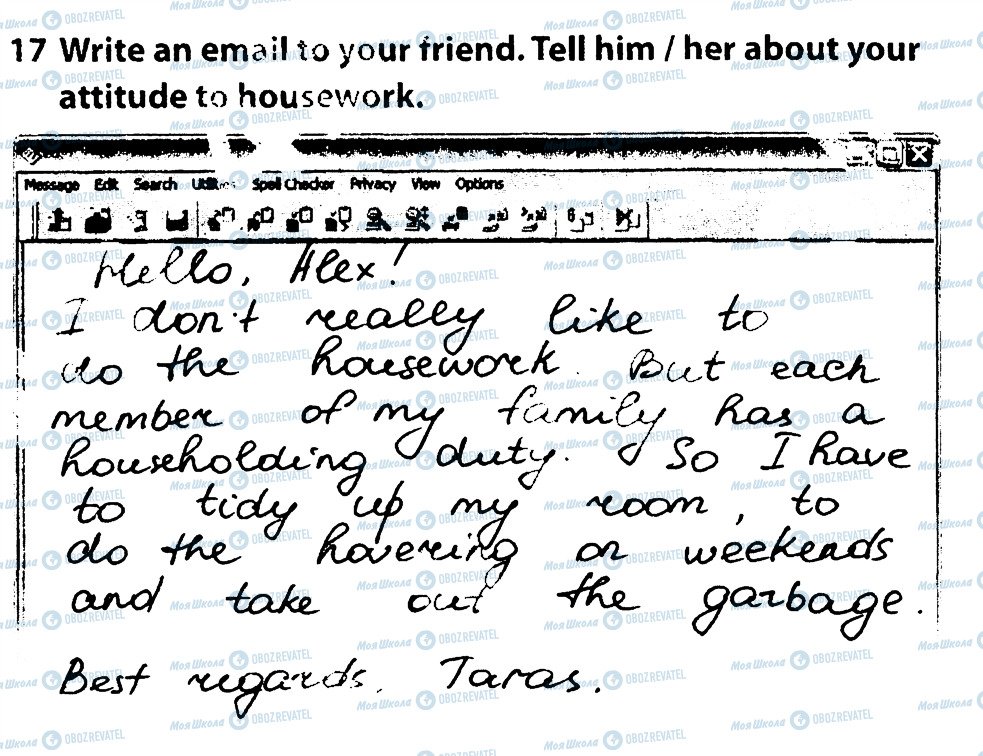 17 Write an email to your friend. Tell him / her about your
attitude to housework.
Message Edit Search Utilities Spell Checker Privacy View Options
Hello, Alex!
I don't really like to
do the housework. But each
member of my family has a
householding duty. So I have
to tidy up my room, to
do the hovering on weekends
and take out the garbage.
Best regards, Taras.
МояШкола OBOZREVATEL